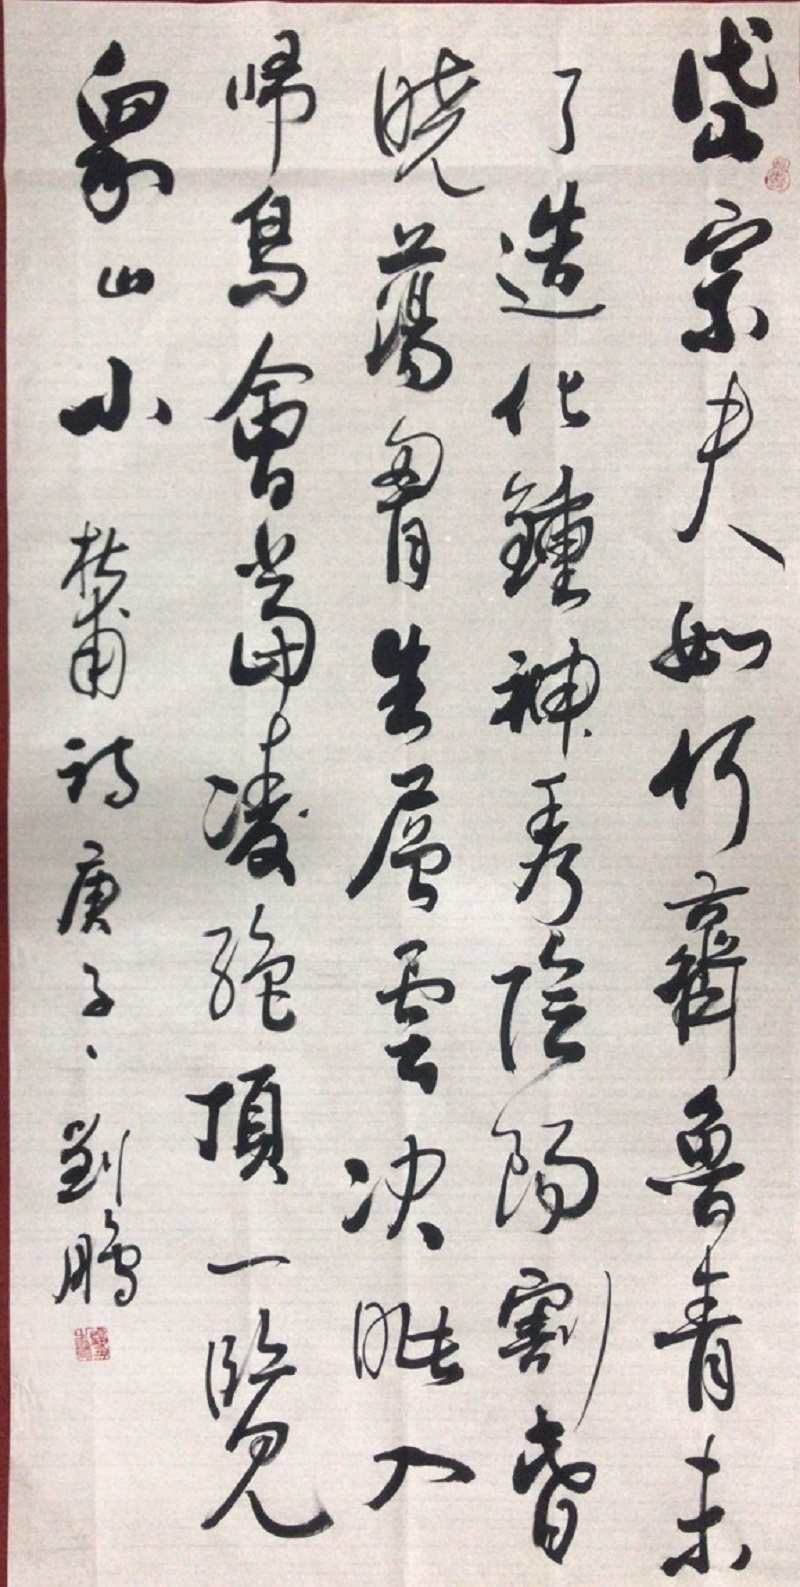 岱宗夫如何齊魯青未
了造化鍾神秀陰陽割昏
曉蕩胷生層雲决眦入
歸鳥會當凌絶頂一覽
衆山小 杜甫詩庚子、劉鵬